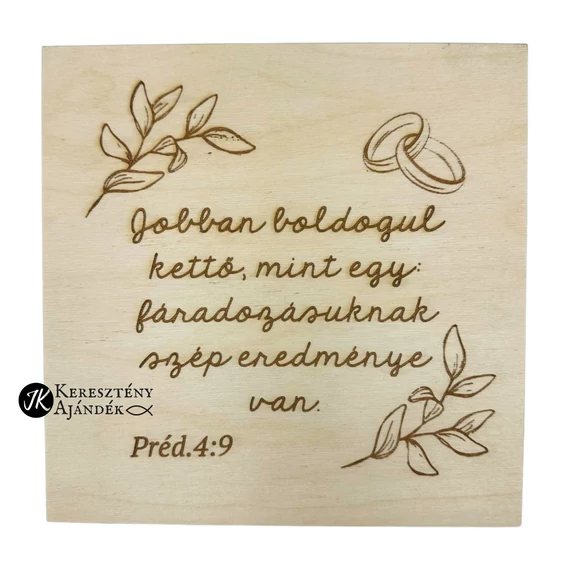 Jobban boldogul
kettő, mint egy:
fáradozásuknak
szép eredménye
van.
Préd.4:9
JK
KERESZTÉNY
AJÁNDÉK